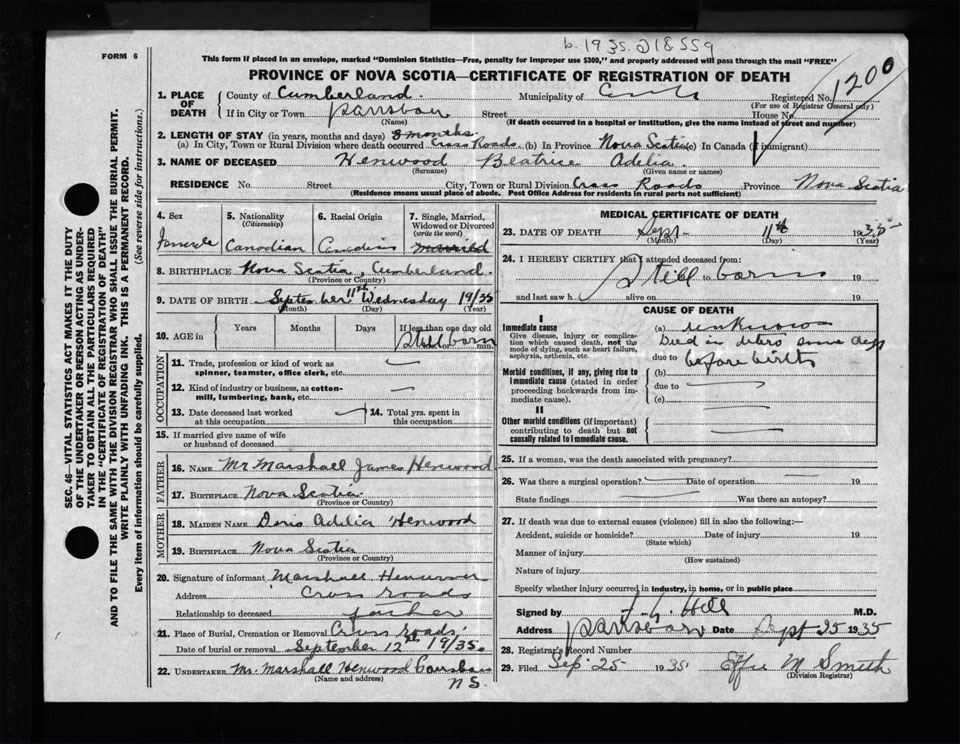 b. 1935. 218559
FORM 6
This form if placed in an envelope, marked "Dominion Statistics—Free, penalty for improper use $300," and properly addressed will pass through the mail "FREE"
PROVINCE OF NOVA SCOTIA—CERTIFICATE OF REGISTRATION OF DEATH
1200
SEC. 46—VITAL STATISTICS ACT MAKES IT THE DUTY
OF THE UNDERTAKER OR PERSON ACTING AS UNDER-
TAKER TO OBTAIN ALL THE PARTICULARS REQUIRED
IN THE "CERTIFICATE OF REGISTRATION OF DEATH"
AND TO FILE THE SAME WITH THE DIVISION REGISTRAR WHO SHALL ISSUE THE BURIAL PERMIT.
WRITE PLAINLY WITH UNFADING INK. THIS IS A PERMANENT RECORD.
Every item of information should be carefully supplied. (See reverse side for instructions.)
1. PLACE OF DEATH County of Cumberland. Municipality of Registered No.
(For use of Registrar General only)
If in City or Town Parrsboro Street House No.
(Name) (If death occurred in a hospital or institution, give the name instead of street and number)
2. LENGTH OF STAY (in years, months and days) 8 months.
(a) In City, Town or Rural Division where death occurred Cross Roads. (b) In Province Nova Scotia (c) In Canada (if immigrant)
3. NAME OF DECEASED Henwood Beatrice Adelia.
(Surname) (Given name or names)
RESIDENCE No. Street City, Town or Rural Division Cross Roads Province Nova Scotia
(Residence means usual place of abode. Post Office Address for residents in rural parts not sufficient)
4. Sex 5. Nationality (Citizenship) 6. Racial Origin 7. Single, Married, Widowed or Divorced (write the word)
Female Canadian Canadian married
8. BIRTHPLACE Nova Scotia, Cumberland.
(Province or Country)
9. DATE OF BIRTH September 11th Wednesday 19/35
(Month) (Day) (Year)
10. AGE in Years Months Days If less than one day old
Stillborn min.
OCCUPATION
11. Trade, profession or kind of work as
spinner, teamster, office clerk, etc.
12. Kind of industry or business, as cotton-
mill, lumbering, bank, etc.
13. Date deceased last worked at this occupation 14. Total yrs. spent in this occupation
15. If married give name of wife
or husband of deceased
FATHER
16. NAME Mr Marshall James Henwood
17. BIRTHPLACE Nova Scotia.
(Province or Country)
MOTHER
18. MAIDEN NAME Doris Adelia Henwood
19. BIRTHPLACE Nova Scotia
(Province or Country)
20. Signature of informant Marshall Henwood
Address Cross roads
Relationship to deceased father
21. Place of Burial, Cremation or Removal Cross roads.
Date of burial or removal September 12th 19/35.
22. UNDERTAKER Mr. Marshall Henwood
(Name and address)
N S.
MEDICAL CERTIFICATE OF DEATH
23. DATE OF DEATH Sept- 11th 1935
(Month) (Day) (Year)
24. I HEREBY CERTIFY that I attended deceased from:
Still to born 19
and last saw h alive on 19
CAUSE OF DEATH
I
Immediate cause
Give disease, injury or complica-
tion which caused death, not the
mode of dying, such as heart failure,
asphyxia, asthenia, etc.
Morbid conditions, if any, giving rise to
immediate cause (stated in order
proceeding backwards from im-
mediate cause).
II
Other morbid conditions (if important)
contributing to death but not
causally related to immediate cause.
(a) unknown
Died in utero some days
due to before birth
(b)
due to
(c)
25. If a woman, was the death associated with pregnancy?
26. Was there a surgical operation? Date of operation 19
State findings Was there an autopsy?
27. If death was due to external causes (violence) fill in also the following:—
Accident, suicide or homicide? Date of injury 19
(State which)
Manner of injury
(How sustained)
Nature of injury
Specify whether injury occurred in industry, in home, or in public place
Signed by Hill M.D.
Address Parrsboro Date Sept 25 1935
28. Registrar's Record Number
29. Filed Sep. 25 1935 Effie M Smith
(Division Registrar)